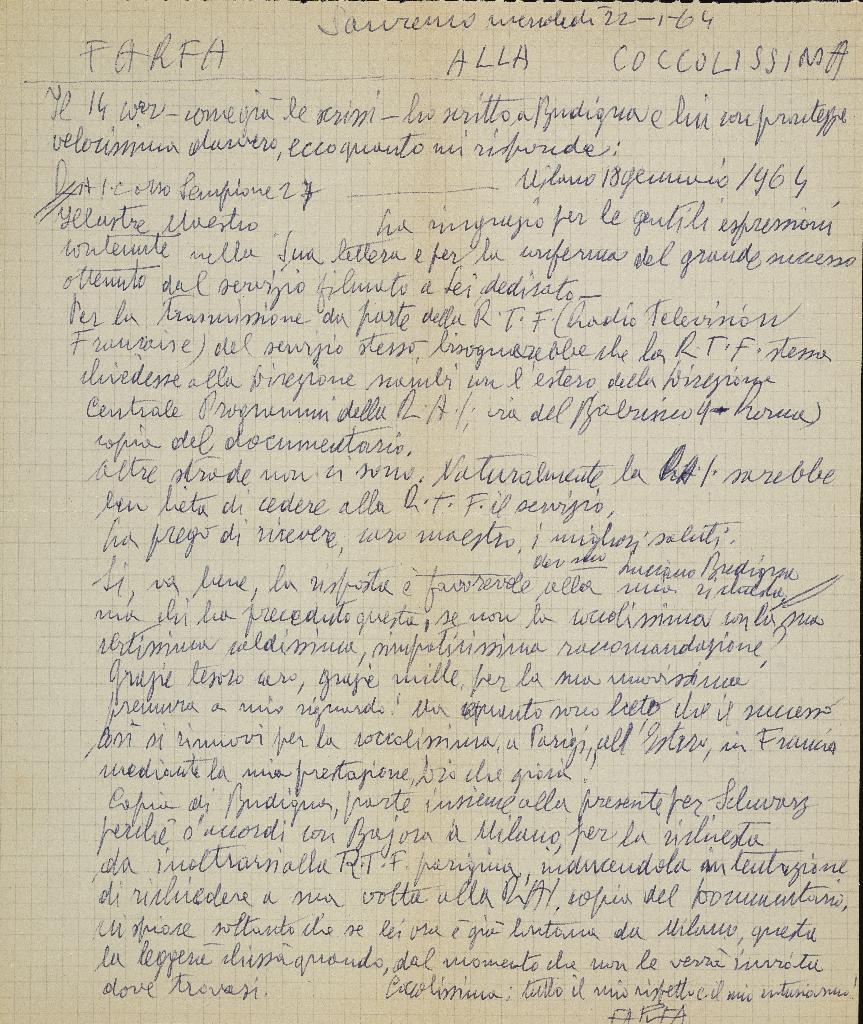 Sanremo mercoledì 22-1-64
FARFA ALLA COCCOLISSIMA
Il 14 corr - come già le scrissi - ho scritto a Budigna e lui con prontezza
velocissima davvero, ecco quanto mi risponde:
R.A.I. corso Sempione 27 Milano 18 gennaio 1964
Illustre Maestro La ringrazio per le gentili espressioni
contenute nella Sua lettera e per la conferma del grande successo
ottenuto dal servizio filmato a Lei dedicato.
Per la trasmissione da parte della R.T.F (Radio Television
Francaise) del servizio stesso, bisognerebbe che la R.T.F. stessa
chiedesse alla Direzione scambi con l'estero della Direzione
Centrale Programmi della R.A.I. via del Babuino 9 - Roma)
copia del documentario.
Altre strade non ci sono. Naturalmente la R.A.I. sarebbe
ben lieta di cedere alla R.T.F. il servizio.
La prego di ricevere, caro maestro, i migliori saluti.
dal suo Luciano Budigna
Sì, va bene, la risposta è favorevole alla mia richiesta,
ma chi ha preceduto questa, se non la coccolissima con la sua
certissima caldissima, simpaticissima raccomandazione?
Grazie tesoro caro, grazie mille, per la sua
premura a mio riguardo! Ma quanto sono lieto che il successo
così si rinnovi per la coccolissima, a Parigi, all'Estero, in Francia
mediante la mia prestazione, Dio che gioia!
Copia di Budigna, parte insieme alla presente per Schwarz
perchè s'accordi con Bajora a Milano, per la richiesta
da inoltrarsi alla R.T.F. parigina, inducendola in tentazione
di richiedere a sua volta alla R.A.I. copia del Documentario,
mi spiace soltanto che se lei ora è già lontana da Milano, questa
la leggerà chissà quando, dal momento che non le verrà inviata
dove trovasi. Coccolissima: tutto il mio rispetto e il mio entusiasmo!
FARFA